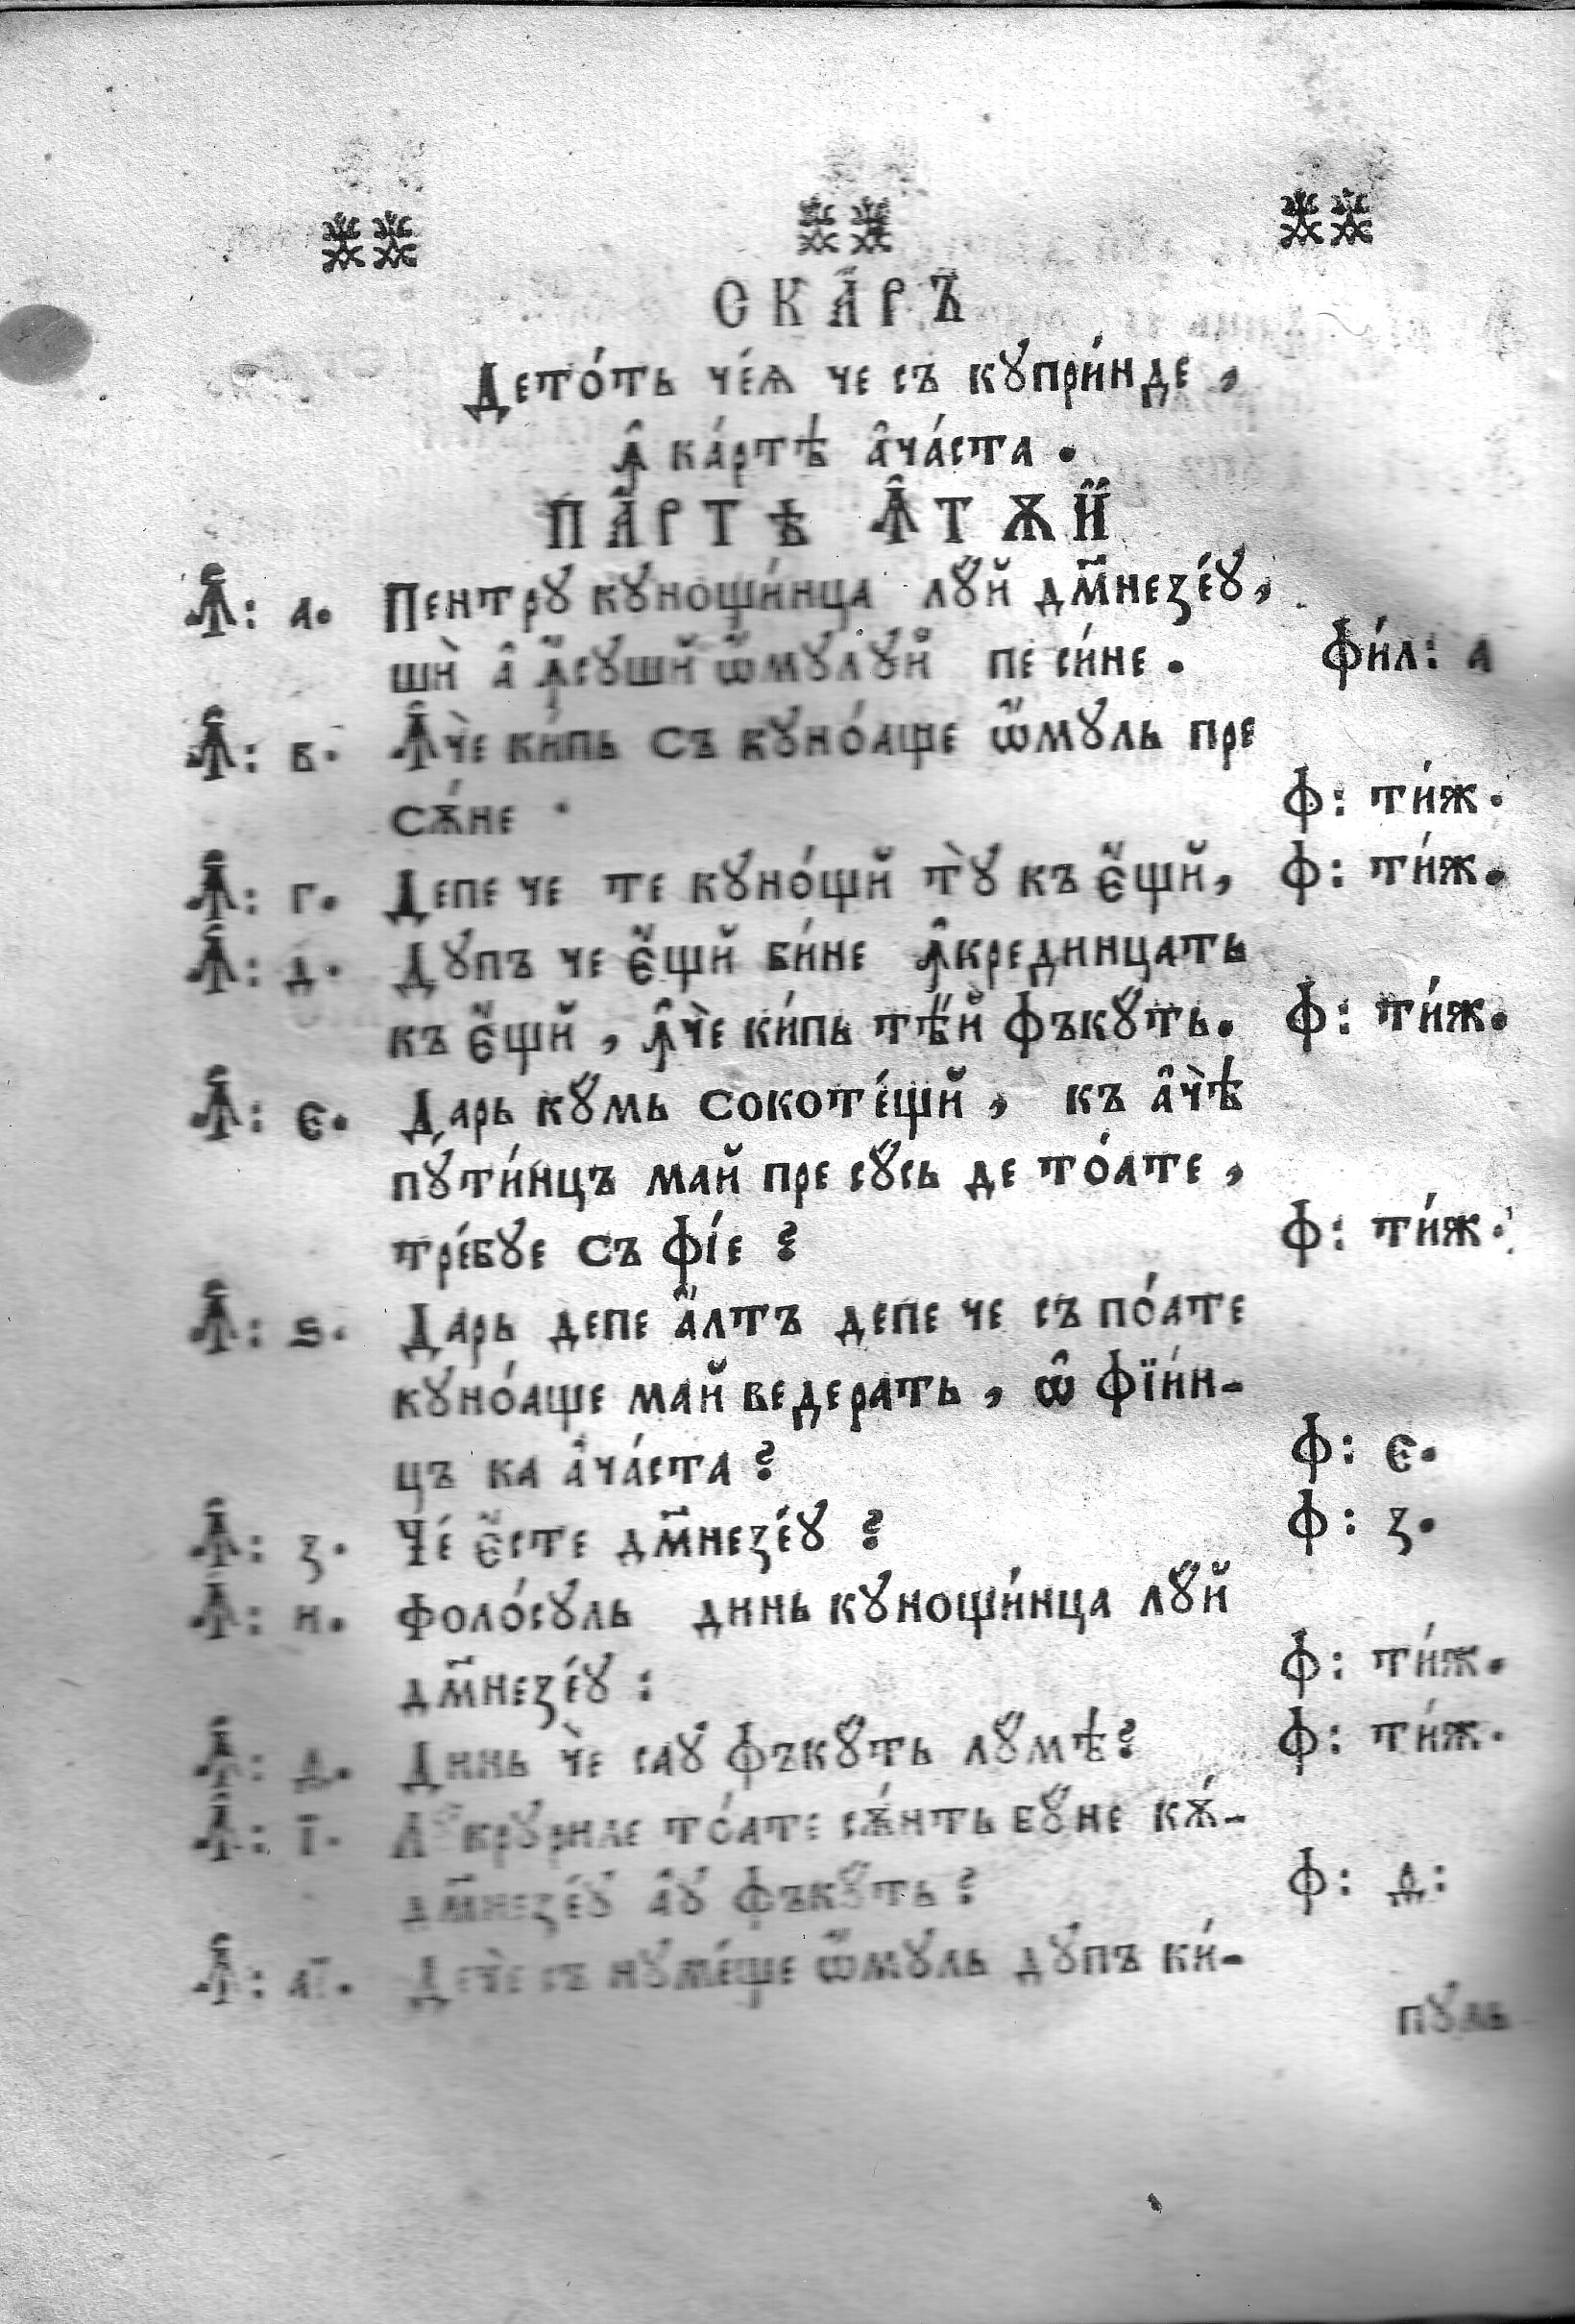 СКА҆́РЪ
Дето́ть че́ѧ че съ кꙋпри́нде ,
ꙟ҆̑ ка́ртѣ а҆̑ча́ста .
ПА҆́РТѢ Ꙟ҆ТѪЙ
Ꙟ: а. Пентрꙋ кꙋноши́нца лꙋ́й дм҃незе́ꙋ,
шѝ а҆̑ ꙟ҆́сꙋшй ѡ҆́мꙋлꙋй пе си́не . Фи́л: а
Ꙟ: в. Ꙟчѐ ки́пь съ кꙋно́аще ѡ҆́мꙋль пре
сѫ́не . Ф: ти́ж.
Ꙟ: г. Депе че те кꙋно́щй тꙋ̀ къ є҆́щй, Ф: ти́ж.
Ꙟ: д. Дꙋпъ че є҆́щй би́не ꙟ҆̑крединцать
къ є҆́щй , ꙟ҆̑чѐ ки́пь тѣ́й фъкꙋ́ть. Ф: ти́ж.
Ꙟ: є. Дарь кꙋ́мь сокоте́щй , къ а҆̑чѣ̀
пꙋти́нцъ май пре сꙋ́сь де то́ате ,
тре́бꙋе съ фі́е ? Ф: ти́ж.
Ꙟ: ѕ. Дарь депе а҆́лтъ депе че съ по́ате
кꙋно́аще май ведерать , ѡ҆̑ фїи́н-
цъ ка а҆̑ча́ста ? Ф: є.
Ꙟ: з. Че́ є҆́сте дм҃незе́ꙋ ? Ф: з.
Ꙟ: и. Фоло́сꙋль динь кꙋноши́нца лꙋ́й
дм҃незе́ꙋ : Ф: ти́ж.
Ꙟ: д. Динь чѐ саꙋ фъкꙋ́ть лꙋ́мѣ? Ф: ти́ж.
Ꙟ: ї. Лꙋкрꙋриле то́ате сѫ́нть бꙋ́не кѫ́-
дм҃незе́ꙋ а҆̑ꙋ фъкꙋ́ть ? Ф: д:
Ꙟ: аї. Дечѐ съ нꙋме́ще ѡ҆́мꙋль дꙋпъ ки́-
пꙋль